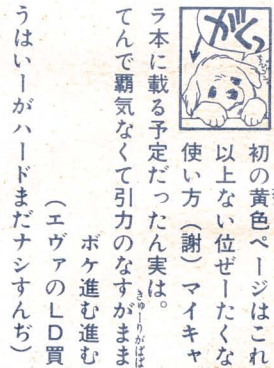 がくっ
初の黄色ページはこれ
以上ない位ぜーたくな
使い方（謝）マイキャ
ラ本に載る予定だったん実は。
てんで覇気なくて引力のなすがまま
きゅーりがぱぱ
ボケ進む進む
（エヴァのLD買
うはいーがハードまだナシすんぢ）